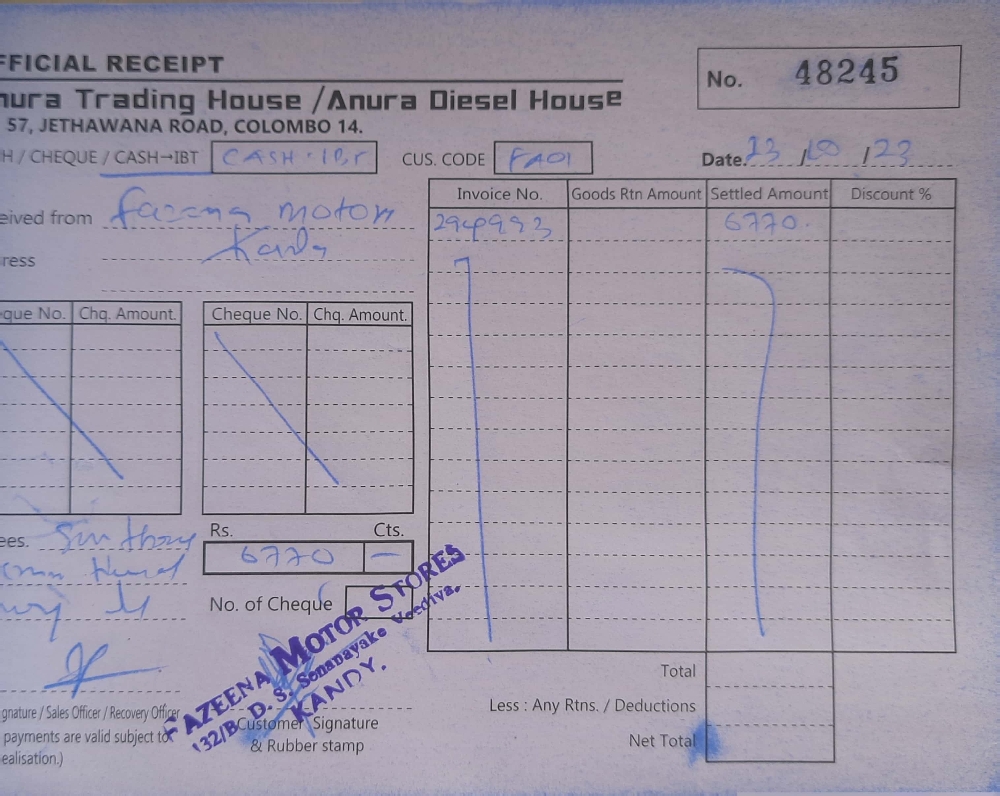 FFICIAL RECEIPT
No. 48245
nura Trading House / Anura Diesel House
57, JETHAWANA ROAD, COLOMBO 14.
H / CHEQUE / CASH→IBT CASH CUS. CODE FA01 Date. 23 / 10 / 23
eived from Fazeena Motors
ress
Invoice No. Goods Rtn Amount Settled Amount Discount %
294993 6770.
que No. Chq. Amount. Cheque No. Chq. Amount.
Rs. Cts.
ees. Six thou
6770 —
No. of Cheque
FAZEENA MOTOR STORES
132/B, D. S. Senanayake Veediya,
KANDY.
gnature / Sales Officer / Recovery Officer
Customer Signature
& Rubber stamp
payments are valid subject to
ealisation.)
Total
Less : Any Rtns. / Deductions
Net Total